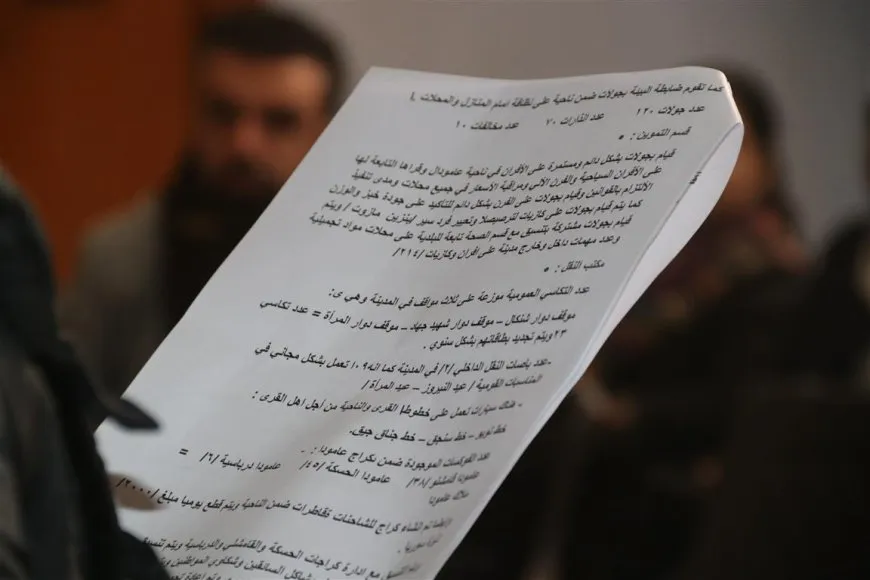 كما تقوم ضابطة البيئة بجولات ضمن ناحية على نظافة امام المنازل والمحلات
عدد جولات ١٢٠ عدد انذارات ٧٠ عدد مخالفات ١٠
قسم التموين : *
قيام بجولات بشكل دائم ومستمرة على الأفران في ناحية عامودا وقراها التابعة لها
على الأفران السياحية والفرن الآلي ومراقبة الأسعار في جميع محلات ومدى تنفيذ
الالتزام بالقوانين وقيام بجولات على الفرن بشكل دائم للتأكيد على جودة خبز والوزن
كما يتم قيام بجولات على كازيات للترصيص وتعيير فرد سير /بنزين – مازوت / ويتم
قيام بجولات مشتركة بتنسيق مع قسم الصحة تابعة للبلدية على محلات مواد تجميلية
وعدد مهمات داخل وخارج مدينة على أفران وكازيات /٢١٤/
مكتب النقل : *
عدد التكاسي العمومية موزعة على ثلاث مواقف في المدينة وهي :
موقف دوار شنكال – موقف دوار شهيد جهاد – موقف دوار المرأة = عدد تكاسي
٢٣ ويتم تجديد بطاقاتهم بشكل سنوي .
-عدد باصات النقل الداخلي /٢/ في المدينة كما انه تعمل بشكل مجاني في
المناسبات القومية / عيد النيروز – عيد المرأة /
- هناك سيارات تعمل على خطوط القرى والناحية من أجل اهل القرى :
خط توبو – خط سنجق – خط جناق جيق.
عدد الفوكسات الموجودة ضمن كراج عامودا : .
عامودا قامشلو /٣٨/ عامودا الحسكة /٤٥/ عامودا درباسية /٦/ =
ملاك عامودا
ايضا تم انشاء كراج للشاحنات قاطرات ضمن الناحية ويتم قطع يوميا مبلغ /٢٠٠٠/
ليرة سورية .
مع ادارة كراجات الحسكة والقامشلي والدرباسية ويتم
مشاكل السائقين وشكاوي المواطنين